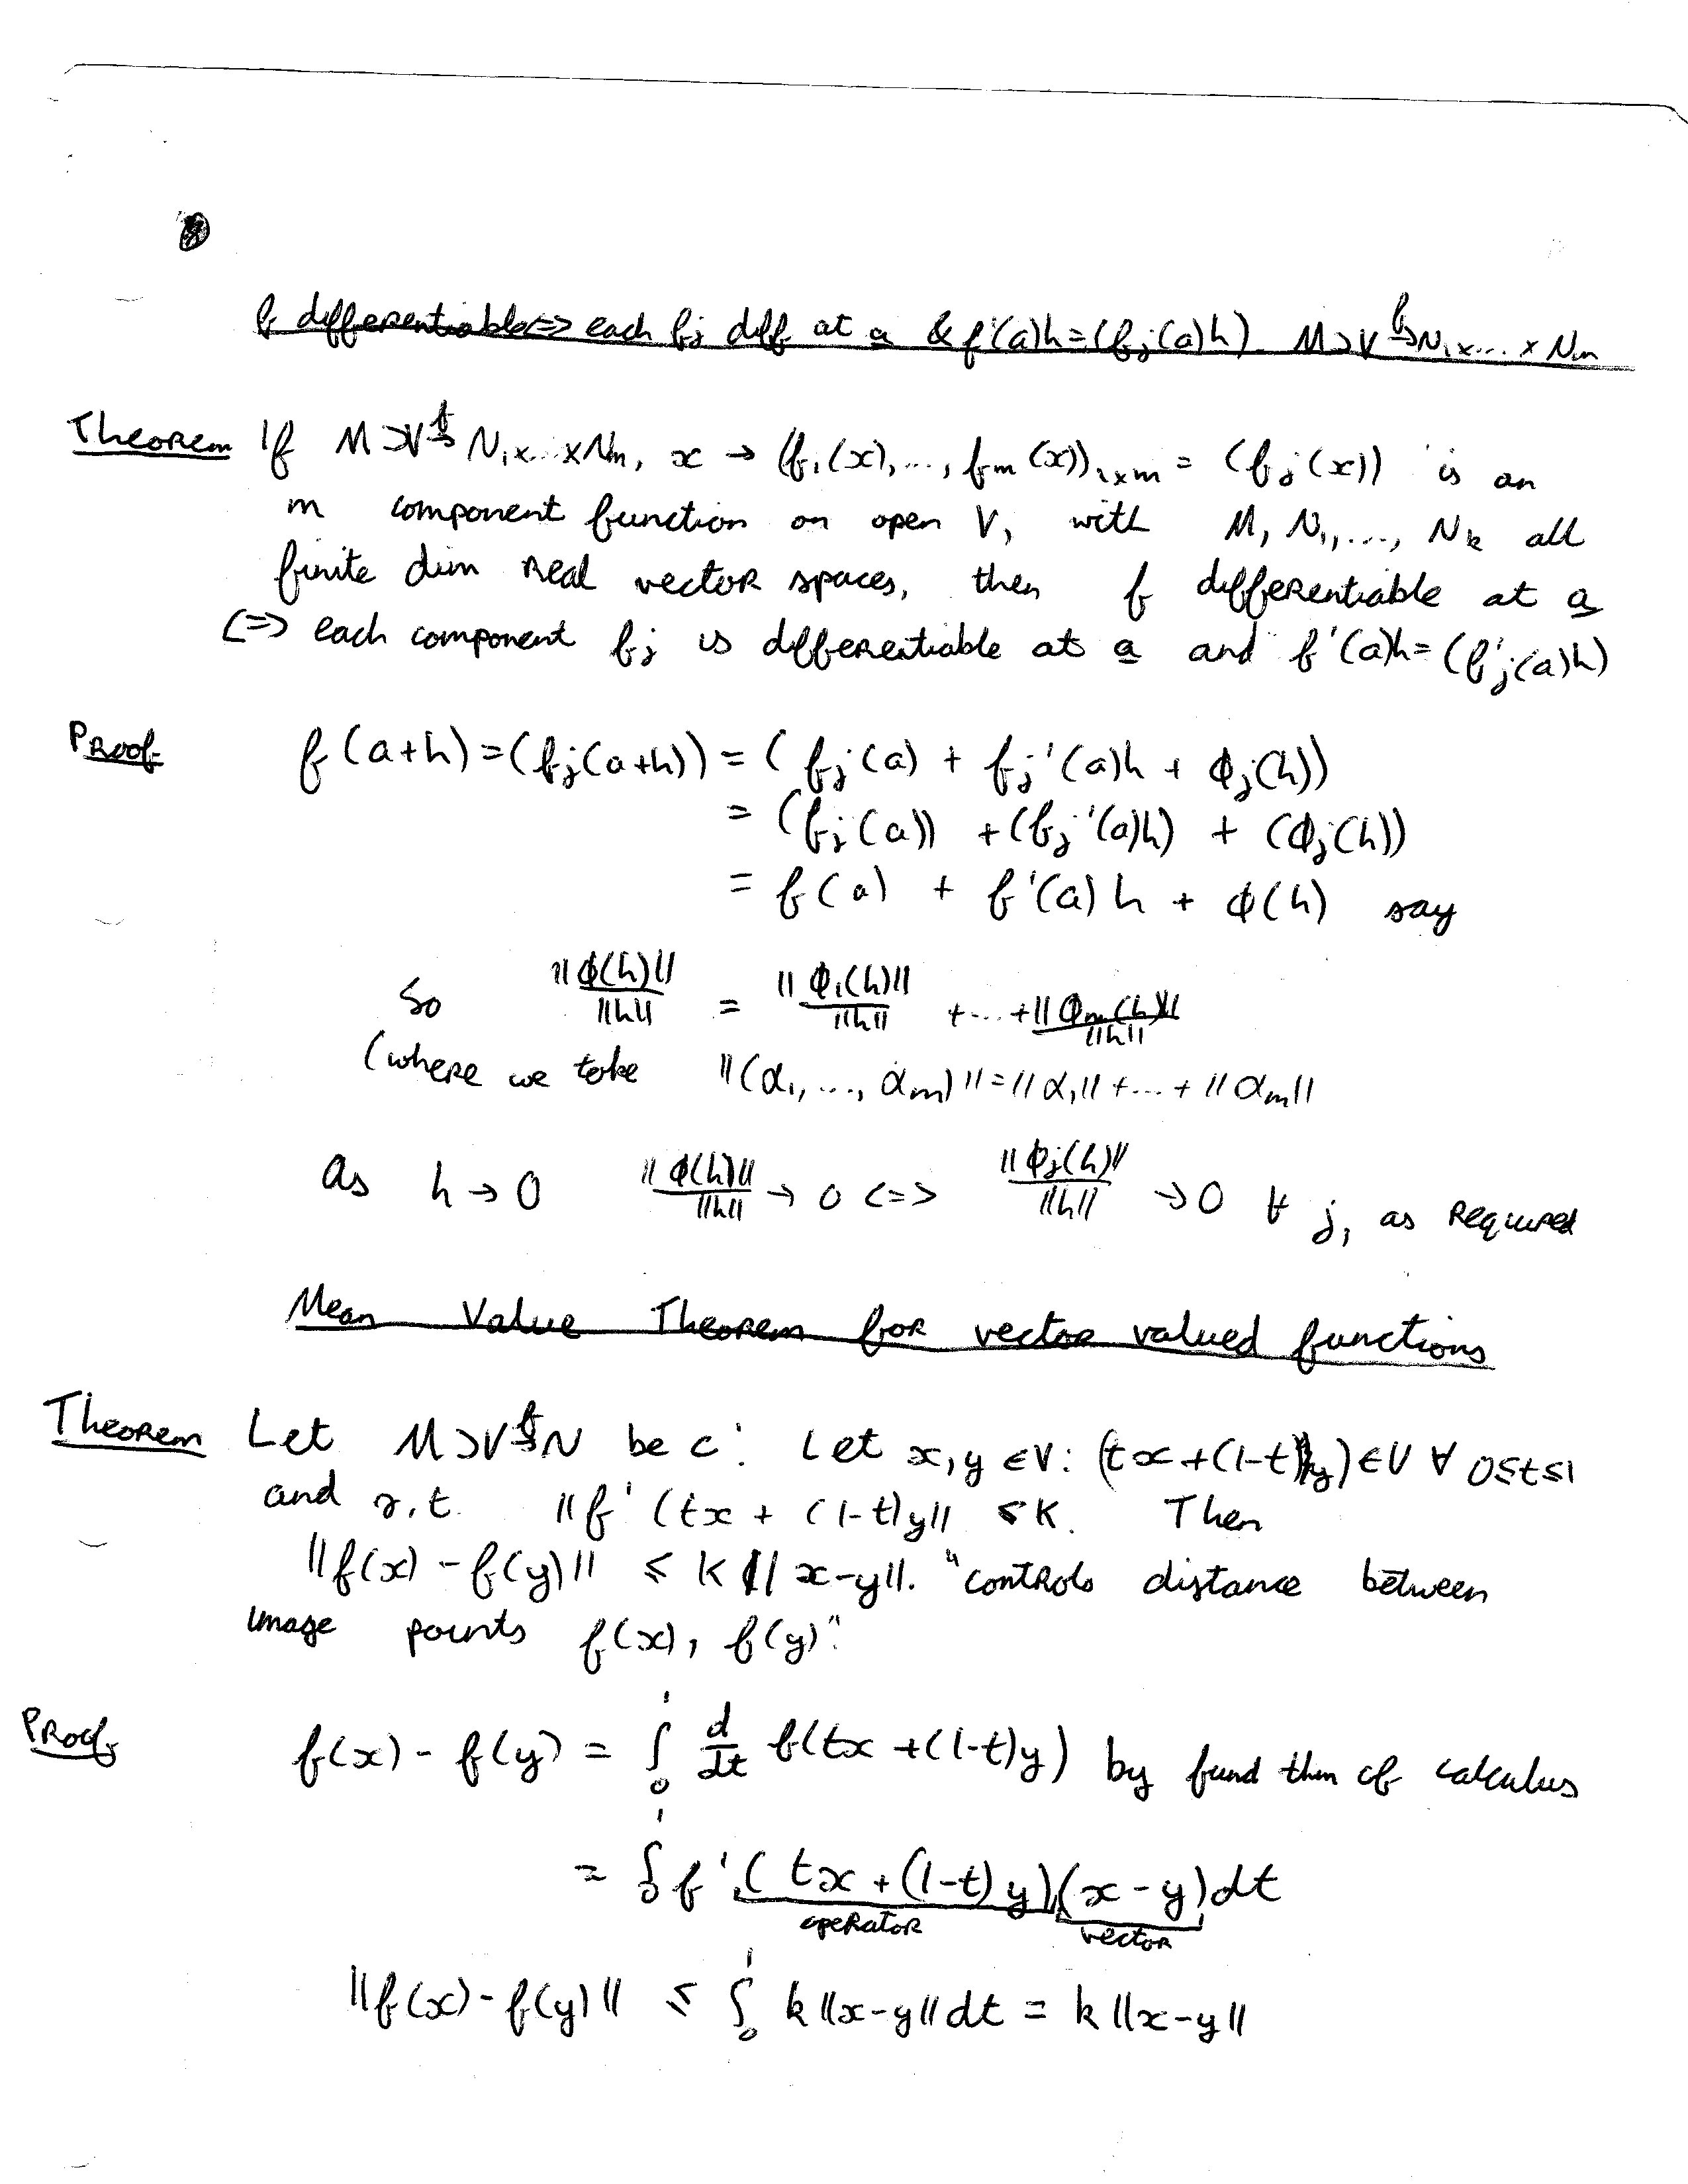 f differentiable <=> each fj diff at a & f'(a)h = (fj(a)h). M⊃V →f N1x...x Nm
Theorem If M⊃V →f N1x...xNm, x → (f1(x),..., fm(x))1xm = (fj(x)) is an
m component function on open V, with M, N1,..., Nk all
finite dim real vector spaces, then f differentiable at a
<=> each component fj is differentiable at a and f'(a)h = (f'j(a)h)
Proof f(a+h) = (fj(a+h)) = (fj(a) + fj'(a)h + φj(h))
= (fj(a)) + (fj'(a)h) + (φj(h))
= f(a) + f'(a)h + φ(h) say
So ||φ(h)||/||h|| = ||φ1(h)||/||h|| + ... + ||φm(h)||/||h||
(where we take ||(α1,..., αm)|| = ||α1|| + ... + ||αm||
as h → 0 ||φ(h)||/||h|| → 0 <=> ||φj(h)||/||h|| → 0 ∀ j, as required
Mean Value Theorem for vector valued functions
Theorem Let M⊃V →f N be C¹. Let x,y ∈V: (tx+(1-t)y)∈V ∀ 0≤t≤1
and s.t. ||f'(tx + (1-t)y|| ≤ K. Then
||f(x) - f(y)|| ≤ K || x-y||. "controls distance between
image points f(x), f(y)".
Proof f(x) - f(y) = ∫₀¹ d/dt f(tx + (1-t)y) by fund thm of calculus
= ∫₀¹ f'(tx + (1-t)y)(x-y)dt
operator vector
||f(x) - f(y)|| ≤ ∫₀¹ k ||x-y|| dt = k ||x-y||